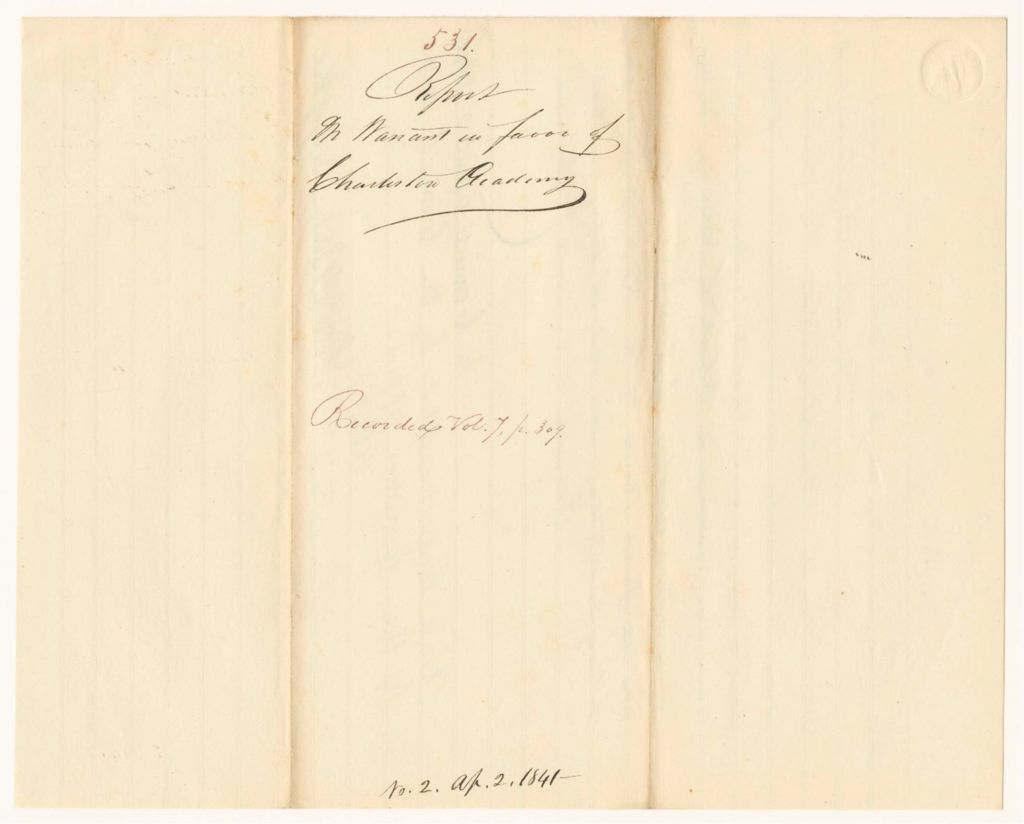 531.
Report
On Warrant in favor of
Charleston Academy
Recorded Vol. 7, p. 309.
No. 2. Ap. 2. 1841